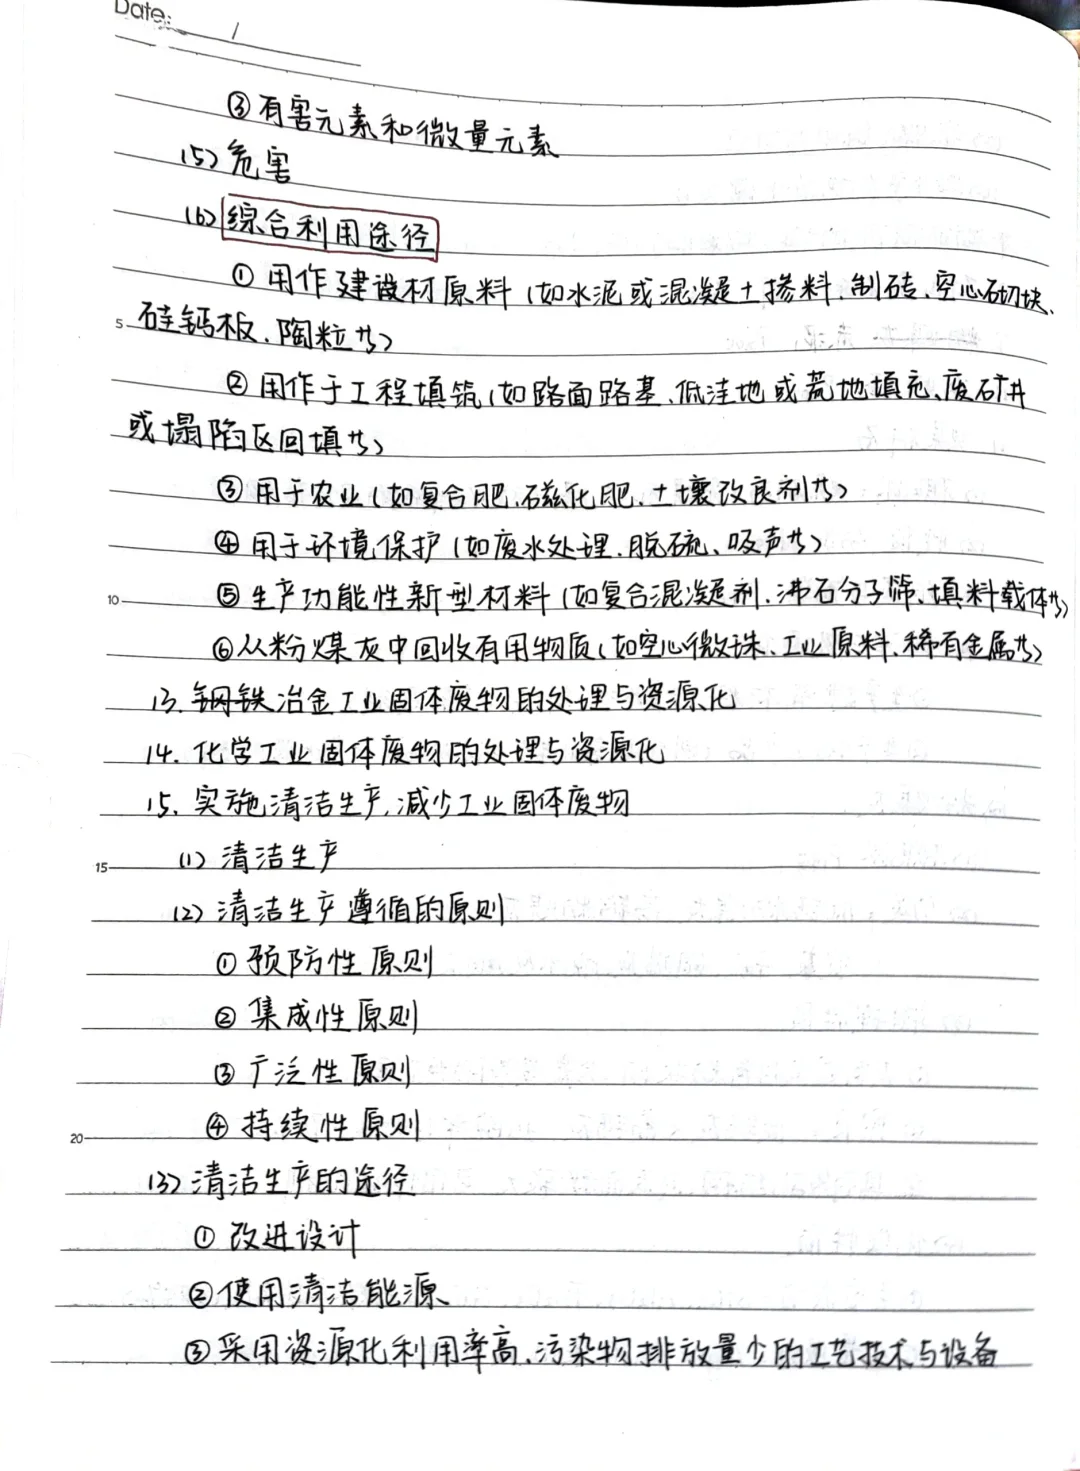 Date: /
③有害元素和微量元素
(5)危害
(6)综合利用途径
①用作建设材原料(如水泥或混凝土掺料、制砖、空心砌块、
5 硅钙板、陶粒等)
②用作于工程填筑(如路面路基、低洼地或荒地填充、废矿井
或塌陷区回填等)
③用于农业(如复合肥、磁化肥、土壤改良剂等)
④用于环境保护(如废水处理、脱硫、吸声等)
10 ⑤生产功能性新型材料(如复合混凝剂、沸石分子筛、填料载体等)
⑥从粉煤灰中回收有用物质(如空心微珠、工业原料、稀有金属等)
13. 钢铁冶金工业固体废物的处理与资源化
14. 化学工业固体废物的处理与资源化
15. 实施清洁生产,减少工业固体废物
15 (1)清洁生产
(2)清洁生产遵循的原则
①预防性原则
②集成性原则
③广泛性原则
20 ④持续性原则
(3)清洁生产的途径
①改进设计
②使用清洁能源
③采用资源化利用率高、污染物排放量少的工艺技术与设备